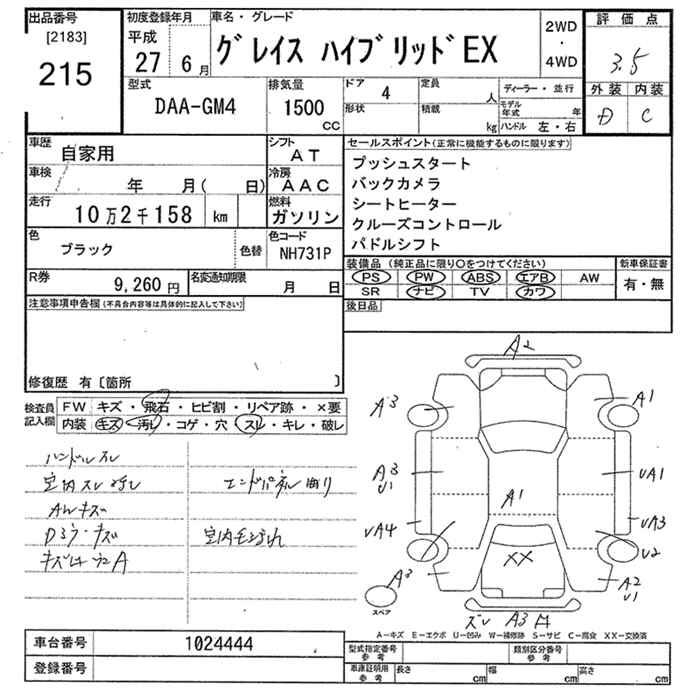 出品番号
[2183]
215
初度登録年月
平成
27 6月
車名・グレード
グレイス ハイブリッドEX
2WD
・
4WD
評価点
3.5
外装 内装
D C
型式
DAA-GM4
排気量
1500
CC
ドア 4
形状
定員 人
積載 kg
ディーラー・並行
モデル年式 年
ハンドル 左・右
車歴 自家用
シフト AT
車検 年 月( 日)
冷房 AAC
走行 10万2千158 km
燃料 ガソリン
色 ブラック 色替
色コード NH731P
R券 9,260円
名変通知期限 月 日
セールスポイント(正常に機能するものに限ります)
プッシュスタート
バックカメラ
シートヒーター
クルーズコントロール
パドルシフト
装備品 (純正品に限り○をつけてください)
PS PW ABS エアB AW
SR ナビ TV カワ
新車保証書
有・無
後日品
注意事項申告欄(不具合内容等は具体的に記入して下さい)
修復歴 有〔箇所 〕
検査員記入欄
FW キズ・飛石・ヒビ割・リペア跡・×要
内装 キズ・汚レ・コゲ・穴・スレ・キレ・破レ
ハンドルスレ
室内スレ汚レ
AWキズ
エンドパネル曲り
室内モジュれ
A2
A3
A1
A3
U1
A1
UA1
UA4
UA3
U2
XX
A3
スペア
A2
U1
ズレ A3
A-キズ E-エクボ U-凹み W-補修跡 S-サビ C-腐食 XX-交換済
車台番号 1024444
登録番号
型式指定番号
参考
類別区分番号
参考
車庫証明用
参考
長さ cm 幅 cm 高さ cm